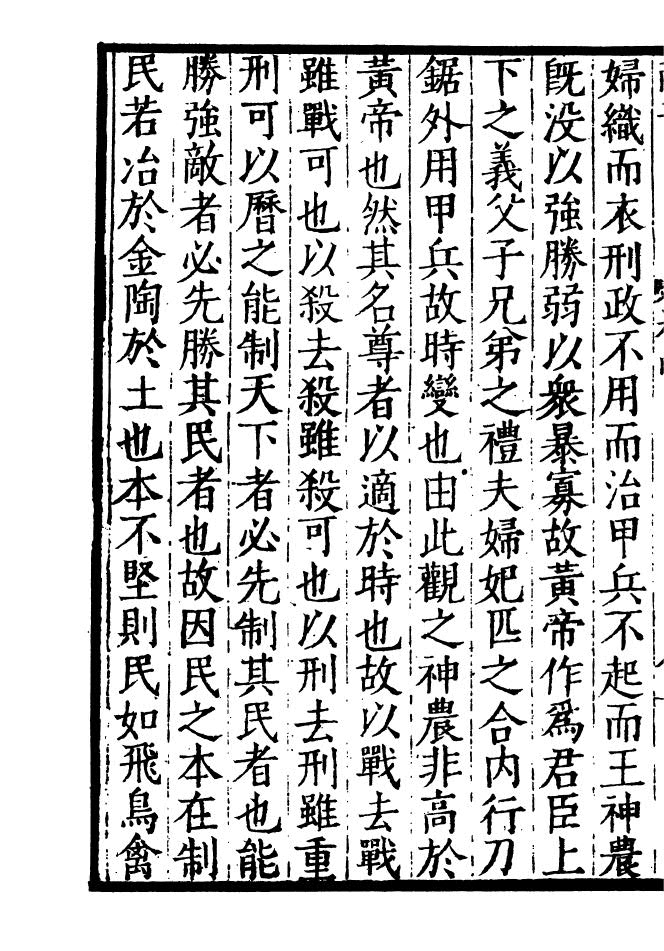 婦織而衣刑政不用而治甲兵不起而王神農
旣没以強勝弱以衆暴寡故黃帝作爲君臣上
下之義父子兄弟之禮夫婦妃匹之合内行刀
鋸外用甲兵故時變也由此觀之神農非高於
黃帝也然其名尊者以適於時也故以戰去戰
雖戰可也以殺去殺雖殺可也以刑去刑雖重
刑可以曆之能制天下者必先制其民者也能
勝強敵者必先勝其民者也故因民之本在制
民若冶於金陶於土也本不堅則民如飛鳥禽